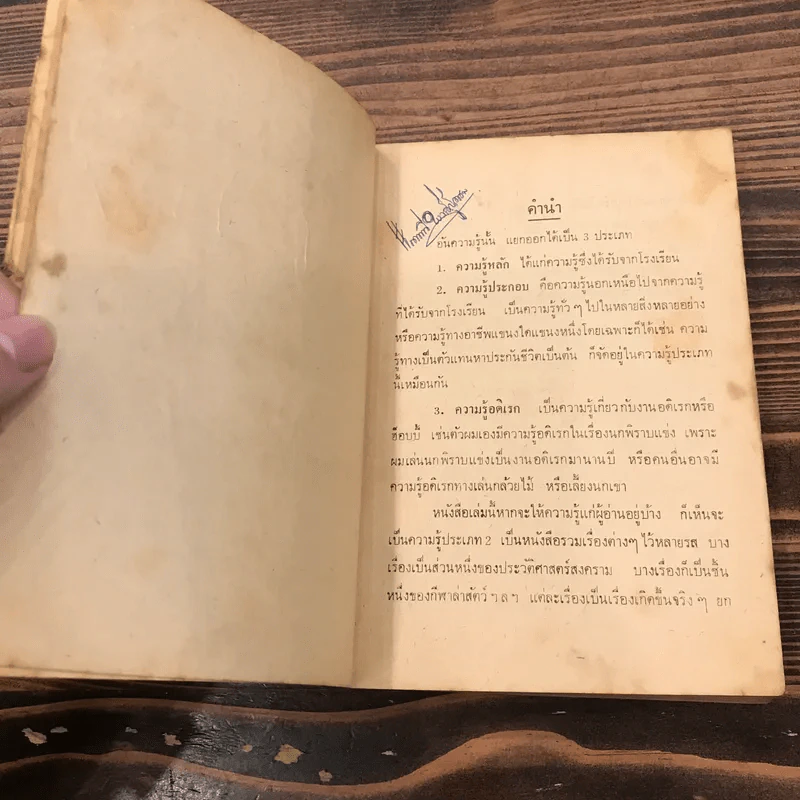 คำนำ
อันความรู้นั้น แยกออกได้เป็น 3 ประเภท
1. ความรู้หลัก ได้แก่ความรู้ซึ่งได้รับจากโรงเรียน
2. ความรู้ประกอบ คือความรู้นอกเหนือไปจากความรู้
ที่ได้รับจากโรงเรียน เป็นความรู้ทั่ว ๆ ไปในหลายสิ่งหลายอย่าง
หรือความรู้ทางอาชีพแขนงใดแขนงหนึ่งโดยเฉพาะก็ได้เช่น ความ
รู้ทางเป็นตัวแทนหาประกันชีวิตเป็นต้น ก็จัดอยู่ในความรู้ประเภท
นี้เหมือนกัน
3. ความรู้อดิเรก เป็นความรู้เกี่ยวกับงานอดิเรกหรือ
ฮ็อบบี้ เช่นตัวผมเองมีความรู้อดิเรกในเรื่องนกพิราบแข่ง เพราะ
ผมเล่นนกพิราบแข่งเป็นงานอดิเรกมานานปี หรือคนอื่นอาจมี
ความรู้อดิเรกทางเล่นกล้วยไม้ หรือเลี้ยงนกเขา
หนังสือเล่มนี้หากจะให้ความรู้แก่ผู้อ่านอยู่บ้าง ก็เห็นจะ
เป็นความรู้ประเภท 2 เป็นหนังสือรวมเรื่องต่างๆ ไว้หลายรส บาง
เรื่องเป็นส่วนหนึ่งของประวัติศาสตร์สงคราม บางเรื่องก็เป็นชิ้น
หนึ่งของกีฬาล่าสัตว์ ฯลฯ แต่ละเรื่องเป็นเรื่องเกิดขึ้นจริง ๆ ยก